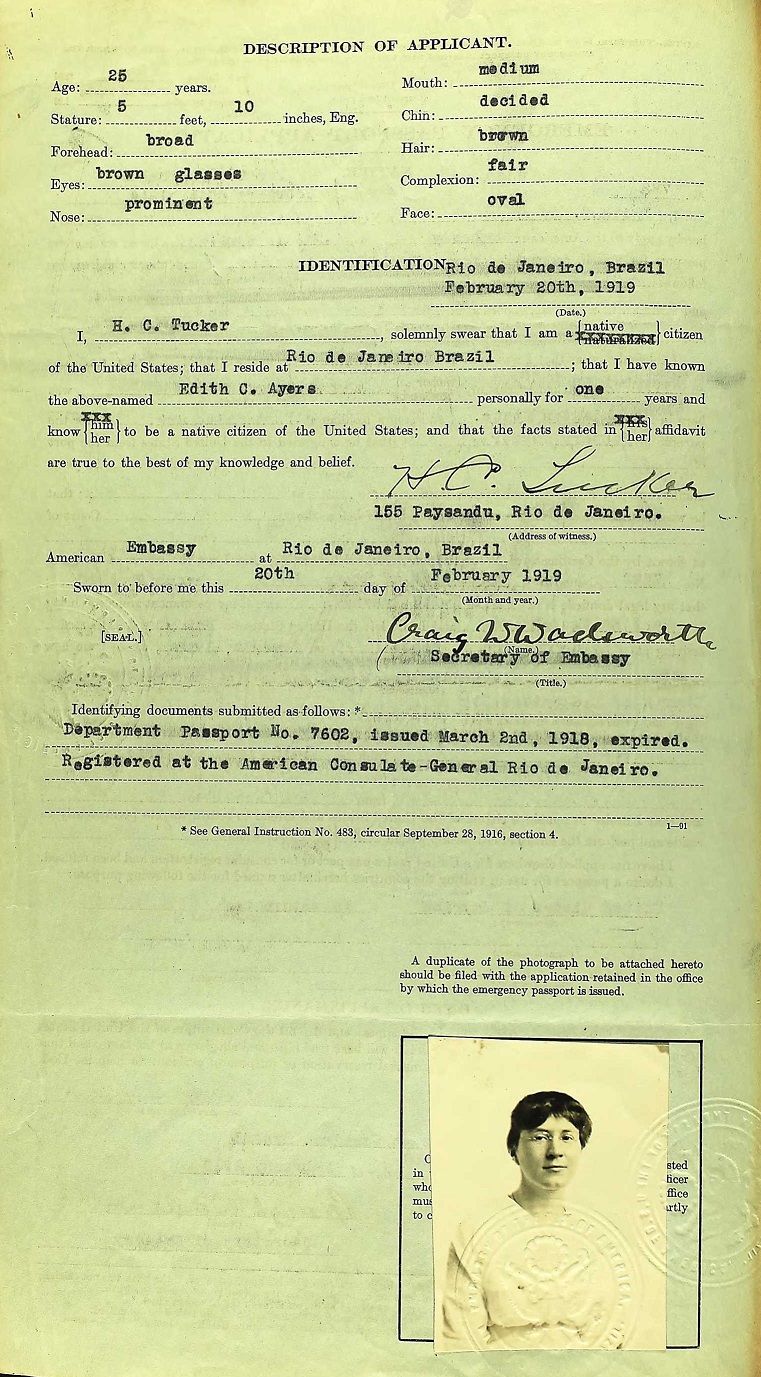 DESCRIPTION OF APPLICANT.
Age: 25 years.
Stature: 5 feet, 10 inches, Eng.
Forehead: broad
Eyes: brown glasses
Nose: prominent
Mouth: medium
Chin: decided
Hair: brown
Complexion: fair
Face: oval
IDENTIFICATION
Rio de Janeiro, Brazil
February 20th, 1919
(Date.)
I, H. C. Tucker, solemnly swear that I am a {native naturalized} citizen
of the United States; that I reside at Rio de Janeiro Brazil; that I have known
the above-named Edith C. Ayers personally for one years and
know {him her} to be a native citizen of the United States; and that the facts stated in {his her} affidavit
are true to the best of my knowledge and belief.
H.C. Tucker
155 Paysandu, Rio de Janeiro.
(Address of witness.)
American Embassy at Rio de Janeiro, Brazil
Sworn to before me this 20th day of February 1919
(Month and year.)
[SEAL.]
Craig W Wadsworth
(Name.)
Secretary of Embassy
(Title.)
Identifying documents submitted as follows: *
Department Passport No. 7602, issued March 2nd, 1918, expired.
Registered at the American Consulate-General Rio de Janeiro.
* See General Instruction No. 483, circular September 28, 1916, section 4.
1—91
A duplicate of the photograph to be attached hereto
should be filed with the application retained in the office
by which the emergency passport is issued.
in
to